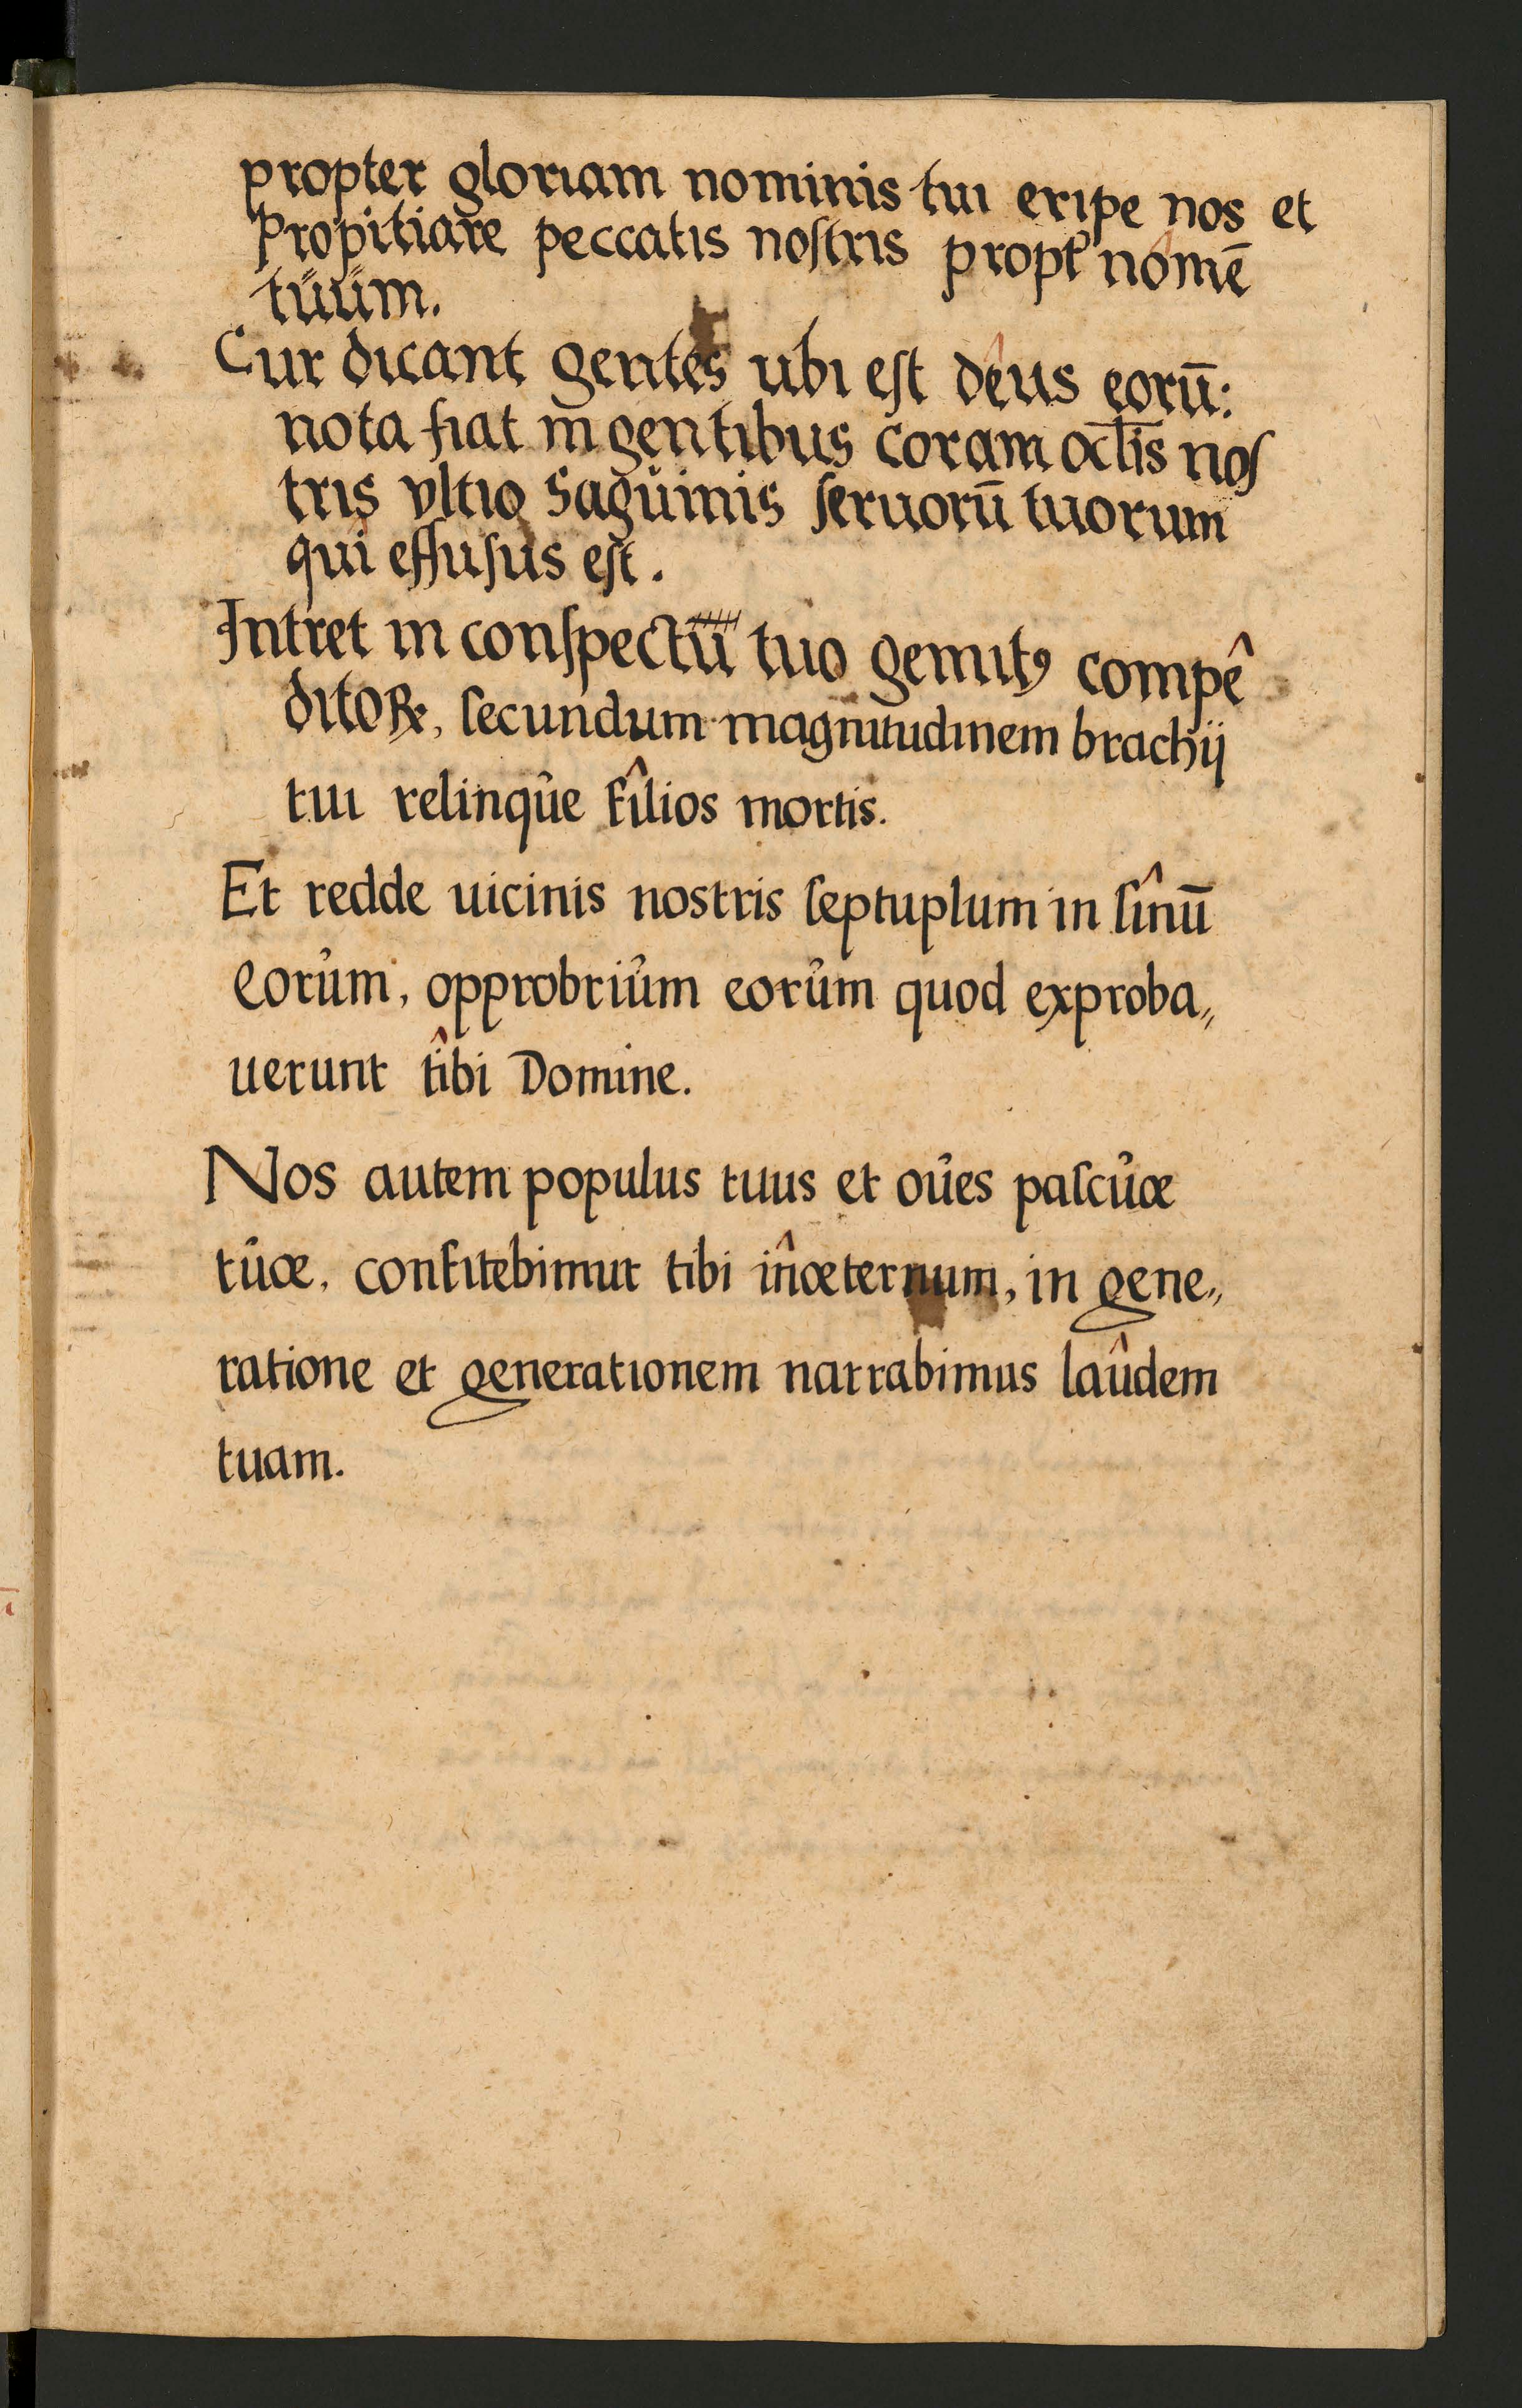 propter gloriam nominis tui eripe nos et
Propitiare peccatis noſtris propt᷒ nômē
tűűm.
Cur dicant gentes ubi eſt dêus eorū:
nota fiat in gentibus coram ocl̄is noſ
tris vltio Sagűinis ſeruorū tuorum
qui effuſus eſt.
Intret in conſpectū tuo gemitꝰ compê
ditoꝝ, ſecundum magnitudinem brachij
tui relinqůe fîlios mortis.
Et redde uicinis nostris ſeptuplum in ſînū
eorům, opprobriům eorům quod exproba„
uerunt tîbi Domine.
Nos autem populus tuus et oůes paſcůæ
tůæ, confitebimur tibi in̂æternum, in gene„
ratione et generationem narrabimus laûdem
tuam.